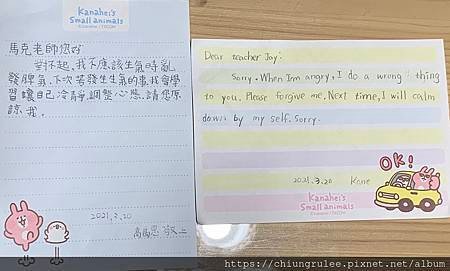 Kanahei's
Small animals
馬克老師您好
對不起,我不應該生氣時亂
發脾氣,下次若發生生氣的事,我會學
習讓自己冷靜,調整心態,請您原
諒我。
2021.3.20
敬上
Dear teacher Jay:
Sorry. When I'm angry, I do a wrong thing
to you. Please forgive me. Next time, I will calm
down by my self. Sorry.
2021.3.20 Kane
OK!
Kanahei's
Small animals
https://chiungrulee.pixnet.net/album